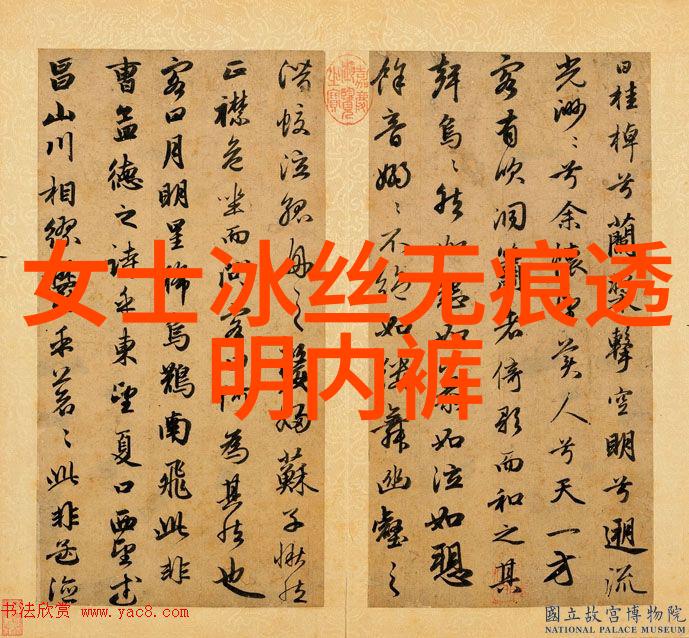 女士冰丝无痕透
明内裤
曰桂棹兮蘭槳擊空明兮遡流
光渺〻兮余懷望美人兮天一方
客有吹洞簫者倚歌而和之其
聲烏〻然如怨如慕如泣如愬
餘音嫋〻不絕如縷舞幽壑之
潛蛟泣孤舟之嫠婦蘇子愀然
正襟危坐而問客曰何為其然也
客曰月明星稀烏鵲南飛此非
曹孟德之詩乎東望夏口西望武
昌山川相繆鬱乎蒼〻此非孟德
书法欣赏 www.yac8.com
國立故宮博物院
NATIONAL PALACE MUSEUM